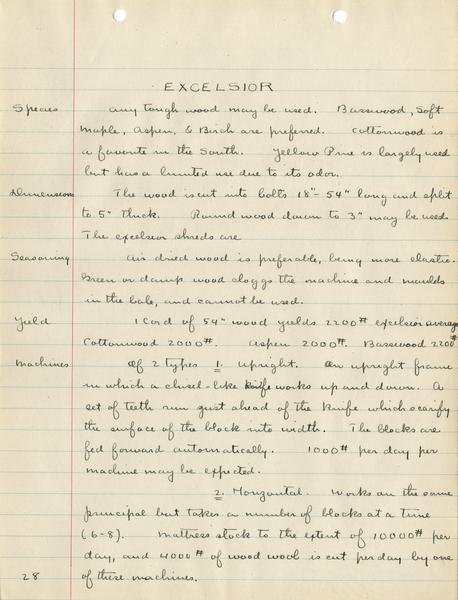 EXCELSIOR
Species any tough wood may be used. Basswood, Soft
Maple, Aspen, & Birch are preferred. Cottonwood is
a favorite in the South. Yellow Pine is largely used
but has a limited use due to its odor.
Dimensions The wood is cut into bolts 18"-54" long and split
to 5" thick. Round wood down to 3" may be used.
The excelsior shreds are
Seasoning Air dried wood is preferable, being more elastic.
Green or damp wood cloggs the machine and moulds
in the bale, and cannot be used.
Yield 1 Cord of 54" wood yields 2200# excelsior average
Cottonwood 2000#. Aspen 2000#. Basswood 2200#
Machines Of 2 types 1. Upright. An upright frame
in which a chisel-like knife works up and down. A
set of teeth run just ahead of the knife which scarify
the surface of the block into width. The blocks are
fed forward automatically. 1000# per day per
machine may be expected.
2. Horizontal. Works on the same
principal but takes a number of blocks at a time
(6-8). Mattress stock to the extent of 10000# per
day, and 4000# of wood wool is cut per day by one
28 of these machines.